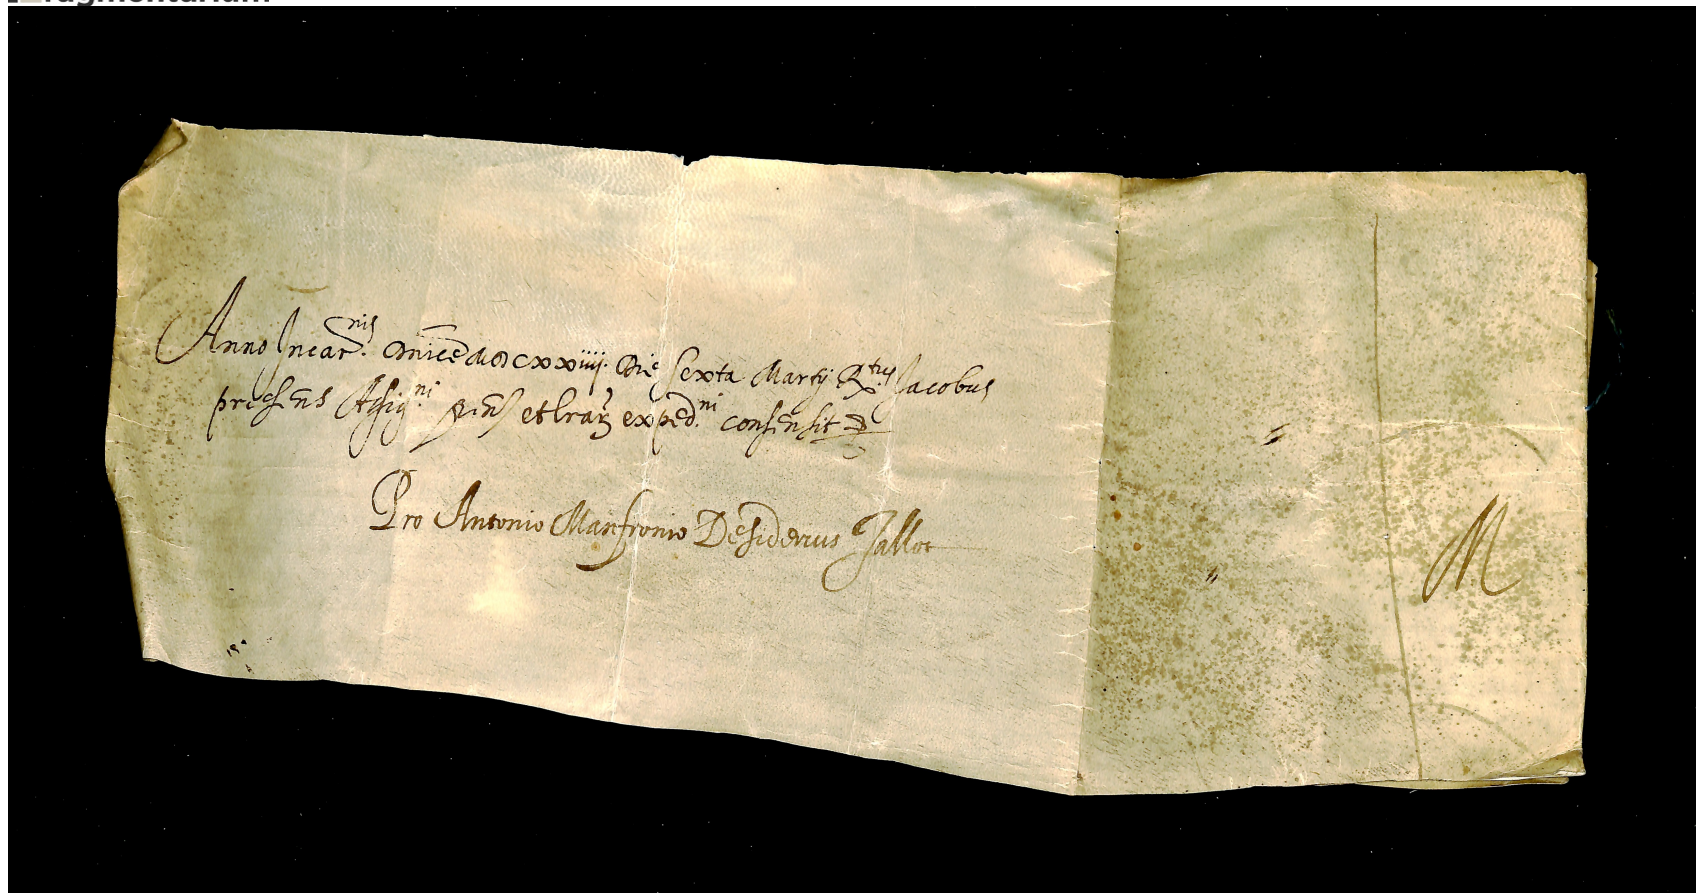 Anno Incar.nis
Dnicē MDCXXIIII. Die Sexta Martij R.tus Jacobus
presens Assig.ni pens et lrarz exped.ni consensit
Pro Antonio Manfronio Desiderius Jallot
M